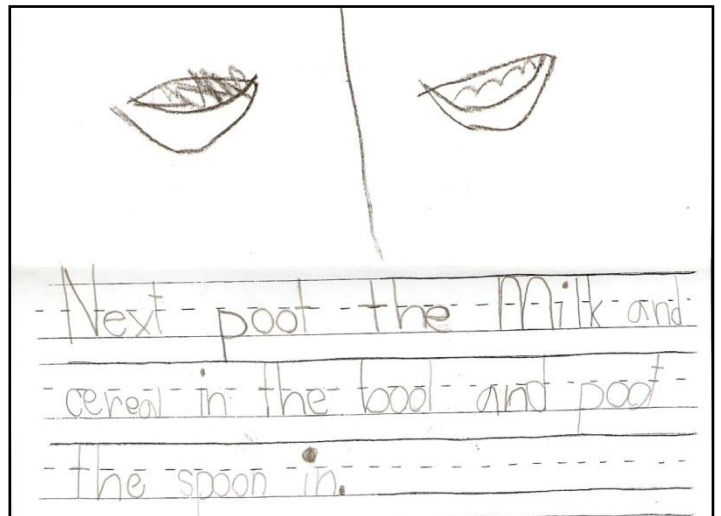 Next poot the Milk and
cereal in the bool and poot
the spoon in.